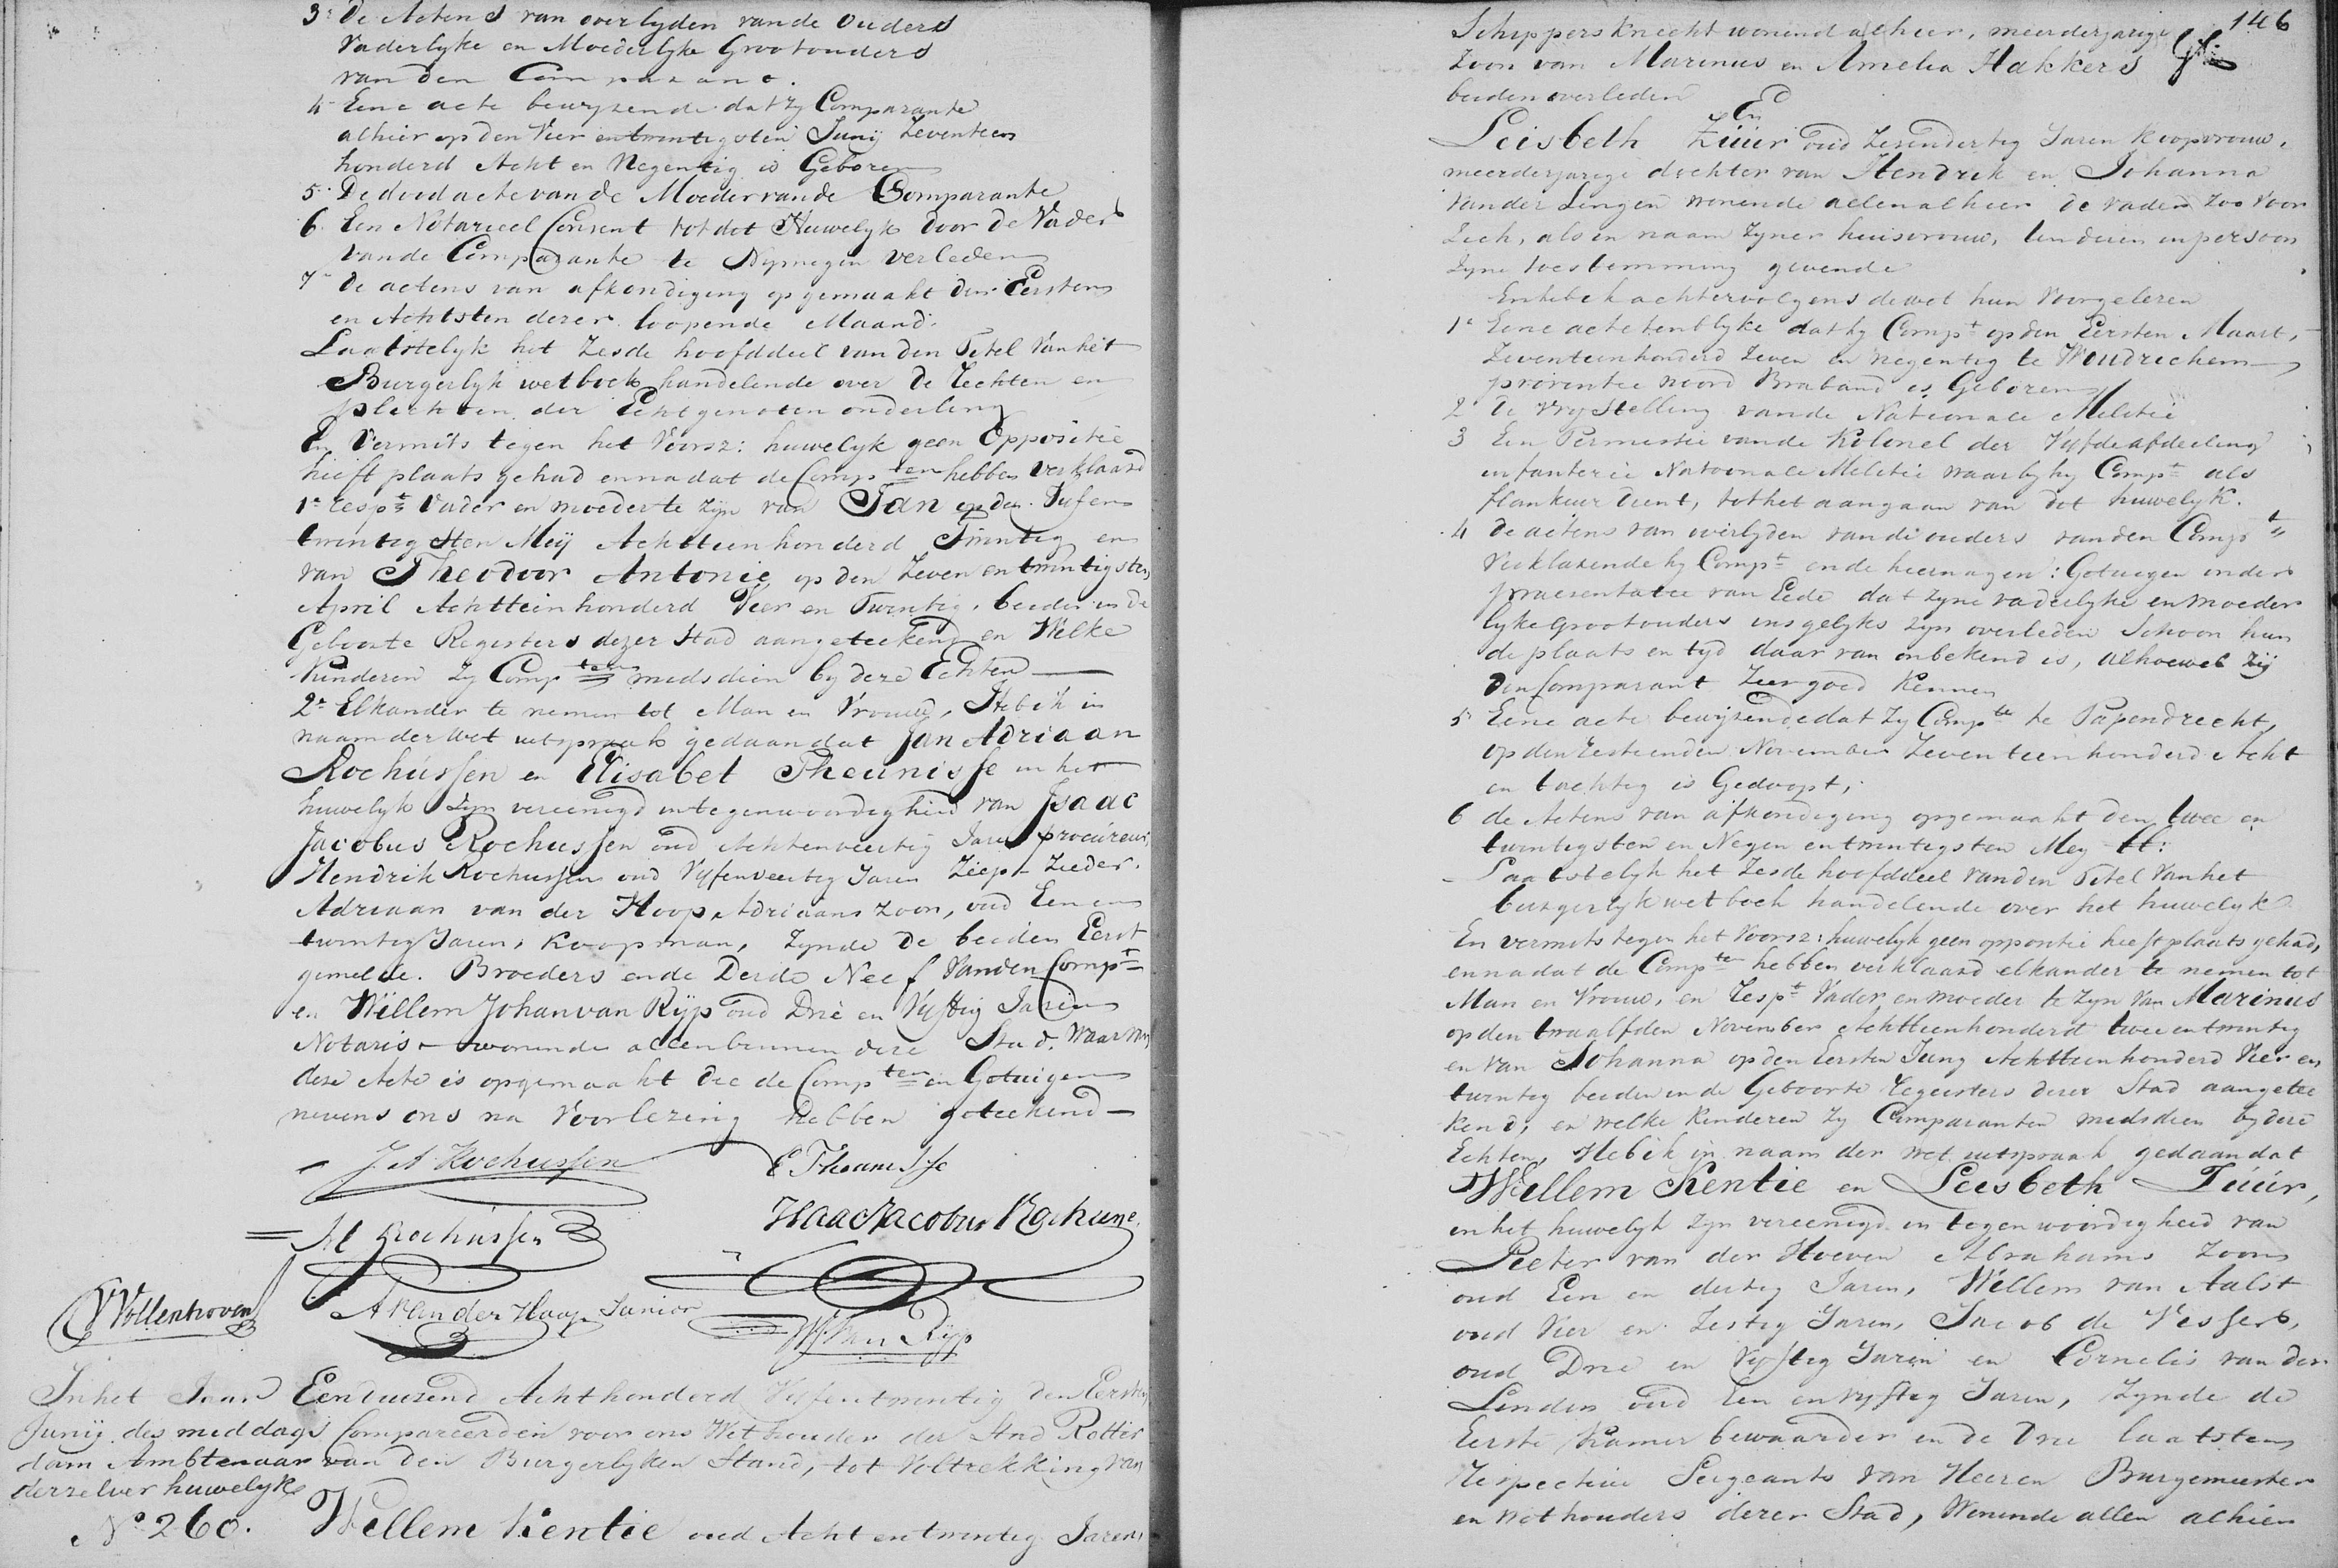 3: De Actens van overlyden van de Ouders
Vaderlyke en Moederlyke Grootouders
van den Comparant.
4 Eene acte bewyzende dat zy Comparante
alhier op den Vier en twintigsten Junij Zeventien
honderd Acht en Negentig is Geboren
5. De doodacte van de Moeder van de Comparante
6. Een Notarieel Consent tot dit Huwelyk door de Vader
van de Comparante te Nymegen verleden
7 de actens van afkondiging opgemaakt den Eersten
en Achtsten dezer loopende Maand.
Laatstelyk het Zesde hoofddeel van den Titel van het
Burgerlyk wetboek handelende over de Rechten en
plichten der Echtgenoten onderling
En Vermits tegen het Voorsz: huwelyk geen Oppositie
heeft plaats gehad en nadat de Compten hebben verklaard
1e respt Vader en moeder te zyn van Jan op den Vyf en
twintigsten Meij Achttienhonderd Twintig en
van Theodoor Antonie op den Zeven en twintigsten
April Achttienhonderd Vier en Twintig, beiden in de
Geboorte Registers dezer Stad aangeteekend en Welke
Kinderen zy Compten midsdien by deze Echten
2e Elkander te nemen tot Man en Vrouw, Heb ik in
naam der Wet uitspraak gedaan dat Jan Adriaan
Rochussen en Elisabet Theunisse in het
huwelyk zyn vereenigd in tegenwoordigheid van Isaac
Jacobus Rochussen oud Achtenveertig Jaren procureur,
Hendrik Rochussen oud Vyfenveertig Jaren Zeep Zieder.
Adriaan van der Hoop Adriaans zoon, oud Een en
twintig Jaren, Koopman, Zynde de beiden Eerst
gemelde Broeders en de Derde Neef van den Compt
en Willem Johan van Ryp oud Drie en Vyftig Jaren
Notaris wonende allen binnen deze Stad. Waar van
deze Acte is opgemaakt die de Compten en Getuigen
nevens ons na Voorlezing hebben geteekend
J A Rochussen
E Theunisse
Isaac Jacobus Rochussen
H Rochussen
VVollenhoven
A Van der Hoop Junior
WJ van Ryp
In het Jaar Eenduizend Achthonderd Vyfentwintig den Eersten
Junij des middags Compareerden voor ons Wethouder der Stad Rotter
dam Ambtenaar van den Burgerlyken Stand, tot Voltrekking van
derzelver huwelyk
No 260. Willem Kentie oud Acht en twintig Jaren,
146
Schippersknecht wonend alhier, meerderjarige
Zoon van Marinus en Amelia Hakkers
beiden overleden
En
Leisbeth Züür oud Zesendertig Jaren Koopvrouw,
meerderjarige dochter van Hendrik en Johanna
Van der Lingen wonende allen alhier de vader zoo voor
Zich, als in naam zyner huisvrouw, ten dezen in persoon
zyne toestemming gevende
En heb ik achtervolgens de wet hun voorgelezen
1e Eene acte ten blyke dat hy Compt op den Eersten Maart,
Zeventienhonderd Zeven en negentig te Woudrichem
provintie noord Braband is Geboren
2 De vrystelling van de Nationale Militie
3 Een Permissie van de Kolonel der Vyfde afdeeling
infanterie Nationale Militie waarby hy Compt als
flankeur dient, tot het aangaan van dit huwelyk.
4 de actens van overlyden van de ouders van den Compt
Verklarende hy Compt en de hierna gen: Getuigen onder
praesentatie van Eede dat zyne vaderlyke en moeder
lyke Grootouders insgelyks zyn overleden Schoon hun
de plaats en tyd daar van onbekend is, alhoewel zij
den Comparant Zeer goed Kennen
5 Eene acte bewyzende dat zy Compte te Papendrecht,
op den Zestienden November Zeventienhonderd Acht
en tachtig is Gedoopt;
6 de Actens van afkondiging opgemaakt den twee en
twintigsten en Negen en twintigsten Mey ll:
Laatstelyk het Zesde hoofddeel van den Titel van het
burgerlyk wetboek handelende over het huwelyk
En vermits tegen het Voorsz: huwelyk geen oppositie heeft plaats gehad,
en nadat de Compten hebben verklaard elkander te nemen tot
Man en Vrouw, en respt Vader en moeder te zyn van Marinus
op den twaalfden November Achttienhonderd twee en twintig
en van Johanna op den Eersten Juny Achttienhonderd Vier en
twintig beiden in de Geboorte registers dezer Stad aangetee
kend, en welke Kinderen zy Comparanten midsdien by deze
Echten, Heb ik in naam der wet uitspraak gedaan dat
Willem Kentie en Leisbeth Züür,
in het huwelyk zyn vereenigd in tegenwoordigheid van
Pieter van der Hoeven Abrahams Zoon
oud Een en dertig Jaren, Willem van Aalst
oud Vier en Zestig Jaren, Jacob de Vissers,
oud Drie en Vyftig Jaren en Cornelis van der
Linden oud Een en Vyftig Jaren, Zynde de
Eerste Kamerbewaarder en de Drie laatsten
Respective Sergeants van Heeren Burgemeester
en Wethouders dezer Stad, Wonende allen alhier